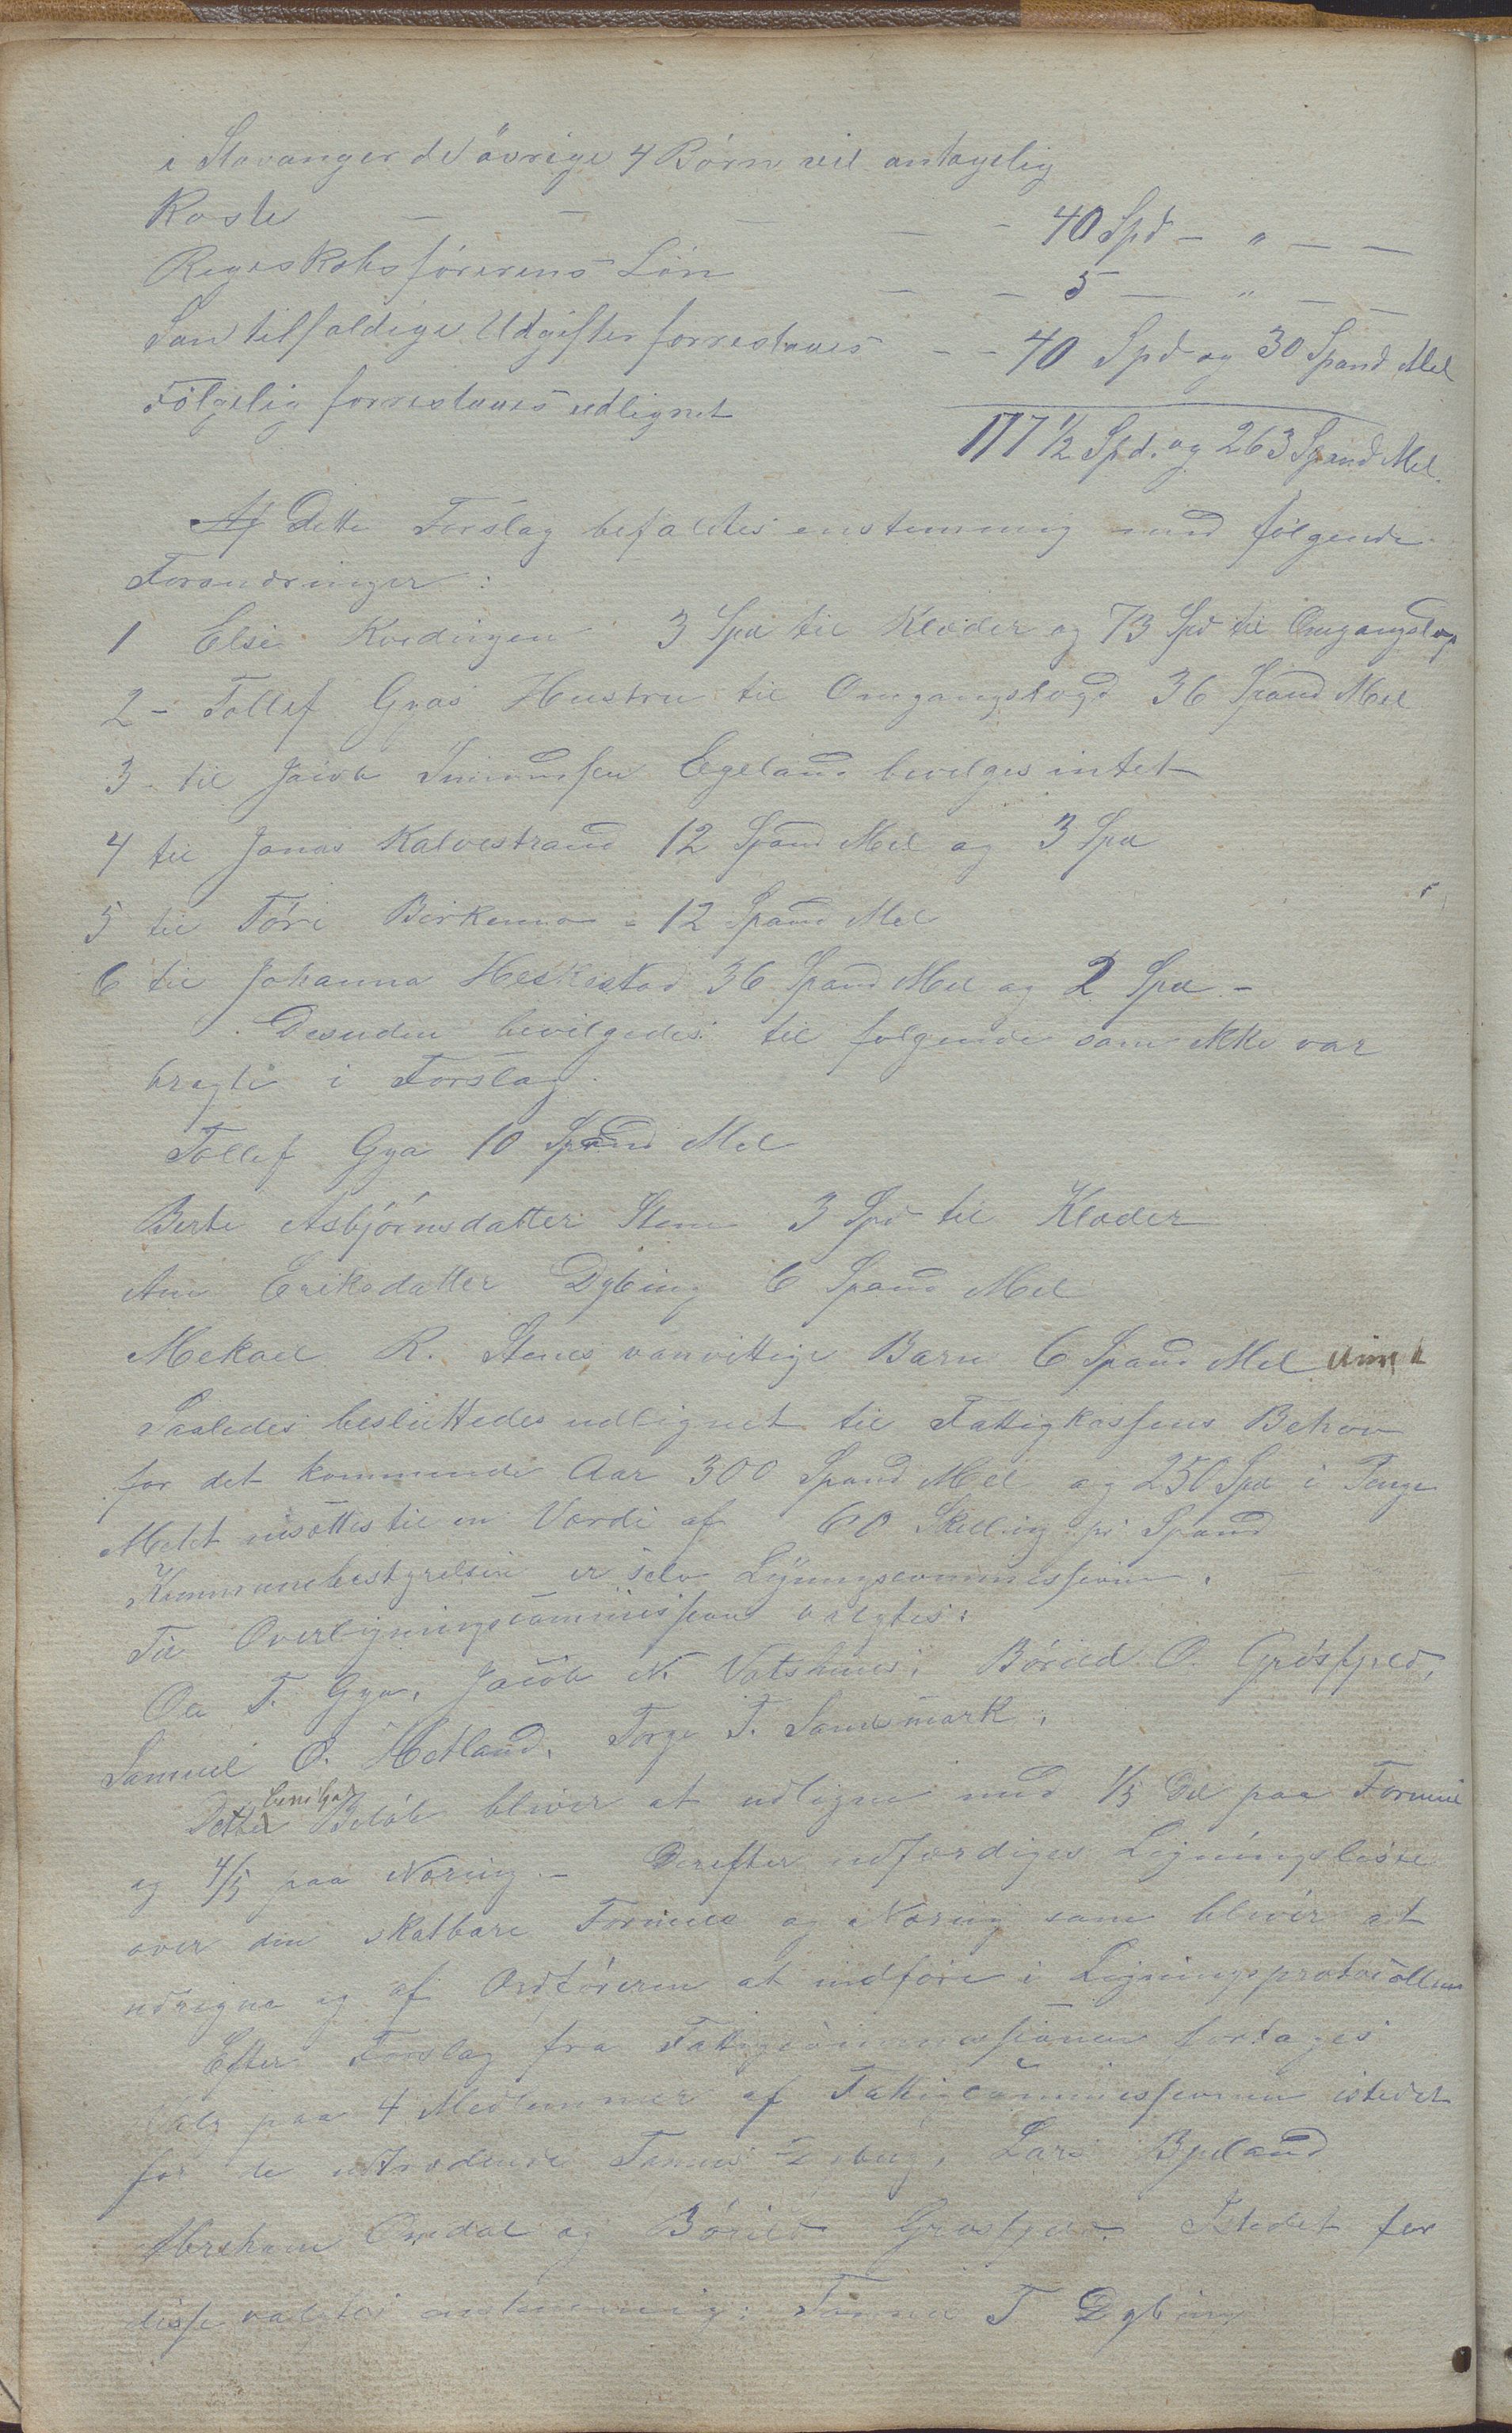 i Stavanger de øvrige 4 Børn vil antagelig
Koste — — — — - 40 Spd — " — —
Regnskabsførerens Løn — - 5 — " — —
Som tilfældige Udgifter foreslaaes - - 40 Spd og 30 Spand Mel
Følgelig foreslaaes udlignet
177 1/2 Spd. og 263 Spand Mel.
Af Dette Forslag befaldtes enstemmig med følgende
Forandringer:
1 Else Kvedingen 3 Spd til Klæder og 73 Spd til Omgangslæg
2 - Tollef Gyas Hustru til Omgangslægd 36 Spand Mel
3 - til Jacob Egeland bevilges intet
4 til Jonas Kalvestrand 12 Spand Mel og 3 Spd
5 til Töri Birkemo - 12 Spand Mel
6 til Johanna Heskestad 36 Spand Mel og 2 Spd -
Desuden bevilgedes til følgende som ikke var
bragte i Forslag.
Tollef Gya 10 Spand Mel
Berte Asbjørnsdatter Stene 3 Spd til Klæder
Ane Eriksdatter Dybing 6 Spand Mel
Mekael R. Stenes vanvittige Barn 6 Spand Mel
Saaledes besluttedes udlignet til Fattigkassens Behov
for det kommende Aar 300 Spand Mel og 250 Spd i Penge
Melet ansættes til en Værdi af 60 Skilling pr Spand
Kommunebestyrelsen er selv Ligningscommission.
Til Overligningscommission valgtes:
Ole T. Gya, Jacob N. Vatshuus, Børild O. Grøsfjeld,
Samuel O. Hetland, Torge T. Sandsmark.
Dette Beløb bliver at udligne med 1/5 Del paa Formue
og 4/5 paa Næring. - Derefter udfærdiges Ligningsliste
over den skatbare Formue og Næring som bliver at
udregne og af Ordføreren at indføre i Ligningsprotocollen
Efter Forslag fra Fattigcommissionen foretages
Valg paa 4 Medlemmer af Fattigcommissionen istedet
for de udtrædende Tønnes Lars Bjelland
Abraham og Børild Grøsfjeld. Istedet for
disse valgtes enstemmig: T Dybing